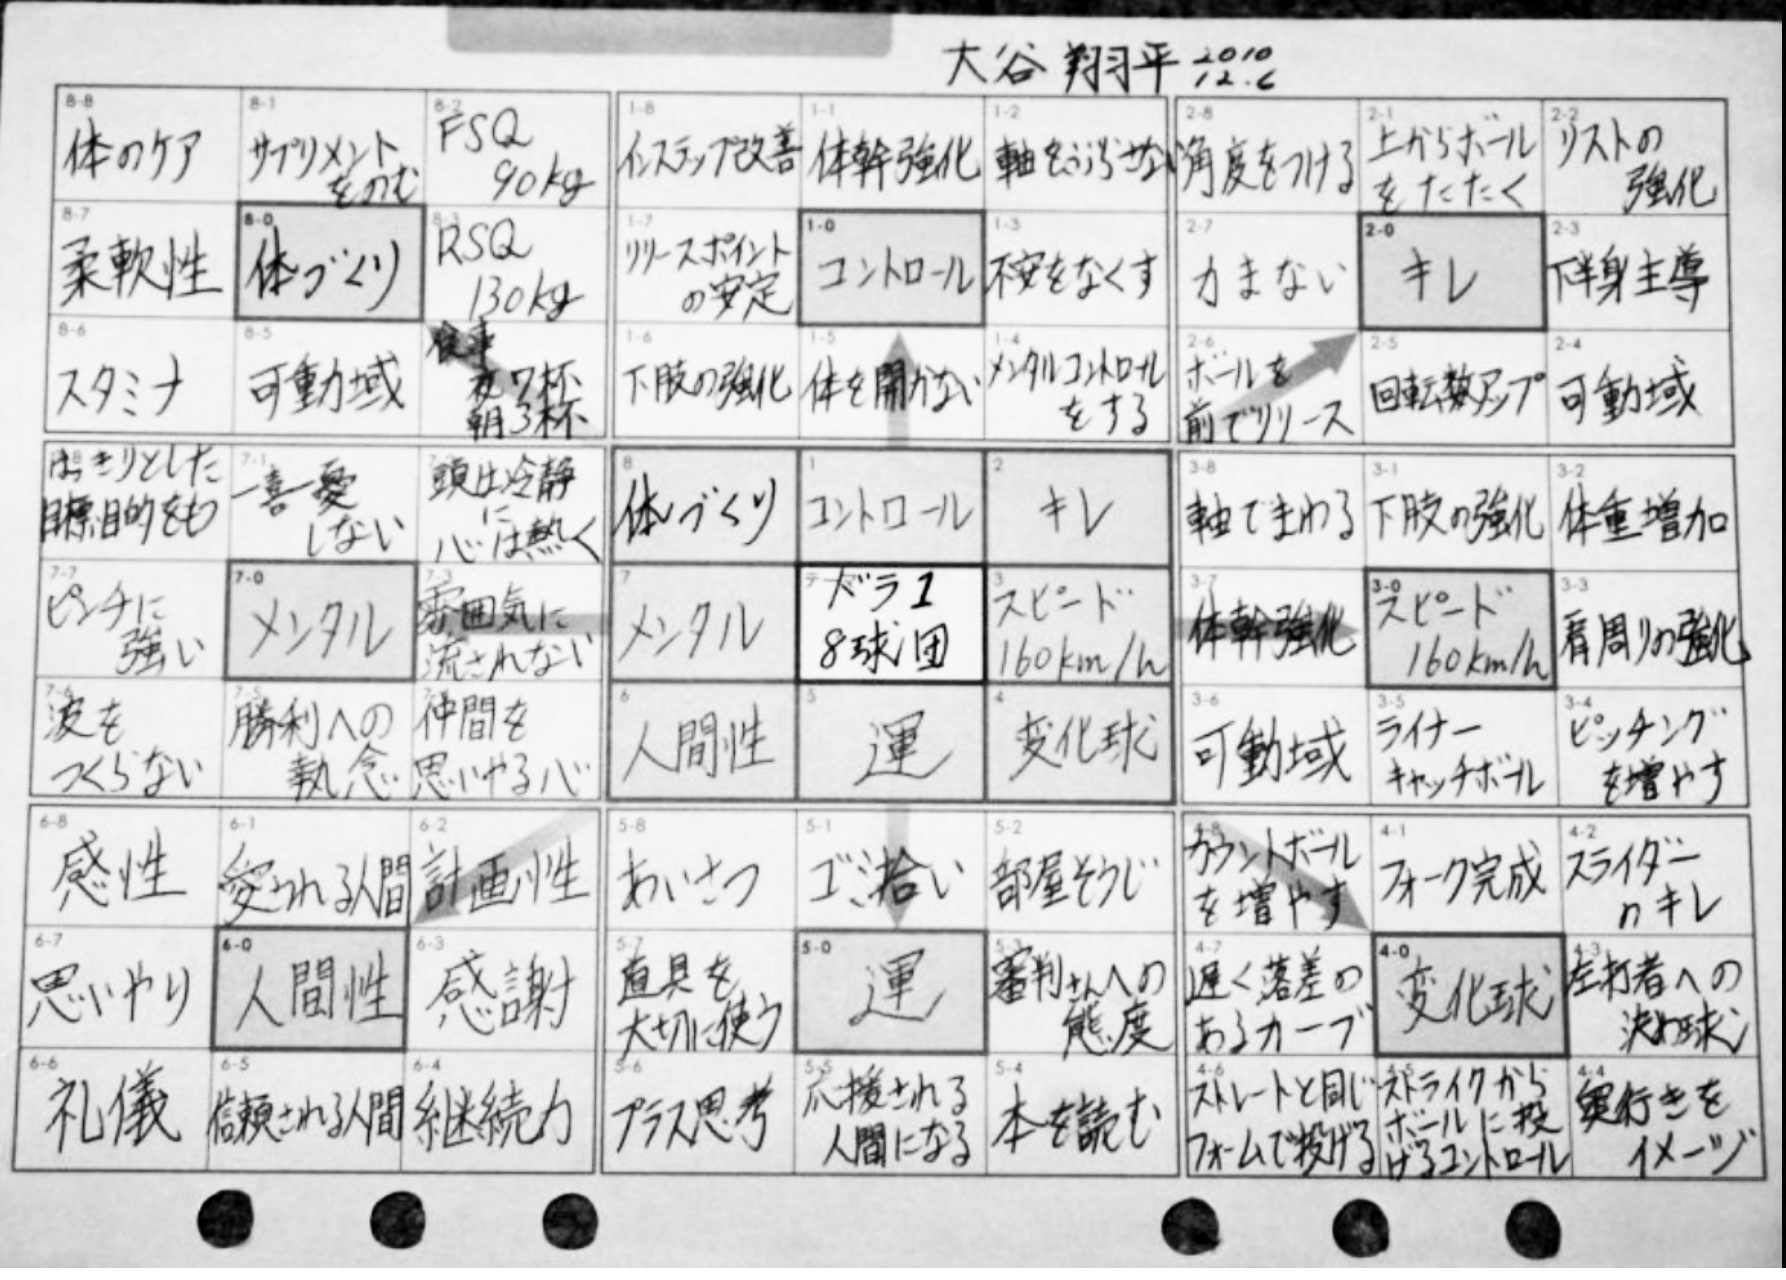 大谷 翔平 2010
12.6
8-8 8-1 8-2 1-8 1-1 1-2 2-8 2-1 2-2
体のケア
サプリメント
をのむ
FSQ
90kg
インステップ改善
体幹強化
軸をぶらさない
角度をつける
上からボール
をたたく
リストの
強化
8-7 8-0 8-3 1-7 1-0 1-3 2-7 2-0 2-3
柔軟性
体づくり
RSQ
130kg
リリースポイント
の安定
コントロール
不安をなくす
力まない
キレ
下半身主導
8-6 8-5 1-6 1-5 1-4 2-6 2-5 2-4
スタミナ
可動域
食事
夜7杯
朝3杯
下肢の強化
体を開かない
メンタルコントロール
をする
ボールを
前でリリース
回転数アップ
可動域
7-1 8 1 2 3-8 3-1 3-2
はっきりとした
目標、目的をもつ
一喜一憂
しない
頭は冷静
に
心は熱く
体づくり
コントロール
キレ
軸でまわる
下肢の強化
体重増加
7-7 7-0 7-3 7 テーマ 3 3-7 3-0 3-3
ピンチに
強い
メンタル
雰囲気に
流されない
メンタル
ドラ1
8球団
スピード
160km/h
体幹強化
スピード
160km/h
肩周りの強化
7-6 7-5 7-4 6 5 4 3-6 3-5 3-4
波を
つくらない
勝利への
執念
仲間を
思いやる心
人間性
運
変化球
可動域
ライナー
キャッチボール
ピッチング
を増やす
6-8 6-1 6-2 5-8 5-1 5-2 4-8 4-1 4-2
感性
愛される人間
計画性
あいさつ
ゴミ拾い
部屋そうじ
カウントボール
を増やす
フォーク完成
スライダー
のキレ
6-7 6-0 6-3 5-7 5-0 5-3 4-7 4-0 4-3
思いやり
人間性
感謝
道具を
大切に使う
運
審判さんへの
態度
遅く落差の
あるカーブ
変化球
左打者への
決め球
6-6 6-5 6-4 5-6 5-5 5-4 4-6 4-5 4-4
礼儀
信頼される人間
継続力
プラス思考
応援される
人間になる
本を読む
ストレートと同じ
フォームで投げる
ストライクから
ボールに投
げるコントロール
奥行きを
イメージ